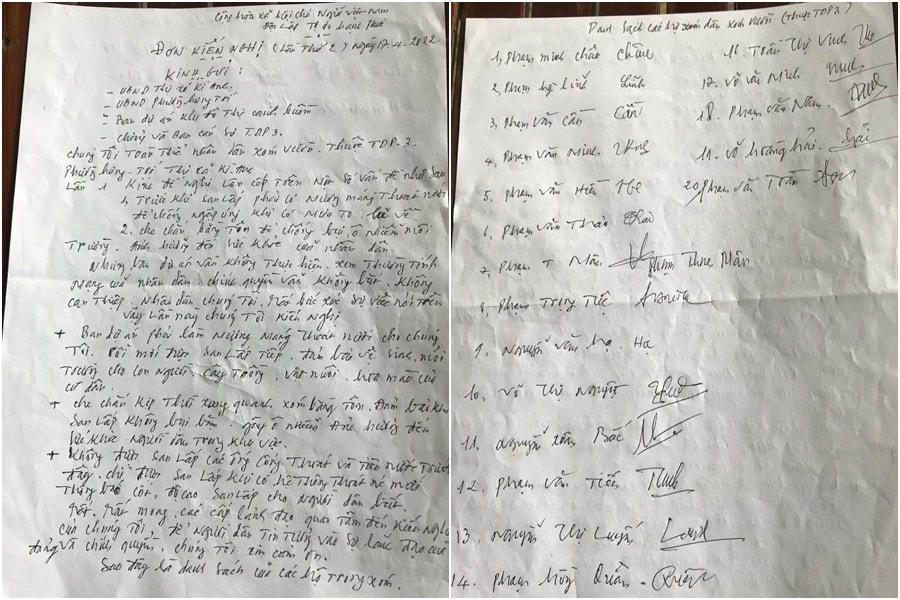 Cộng hòa xã hội chủ Nghĩa việt nam
Độc lập Tự do hạnh phúc
ĐƠN KIẾN NGHỊ (Lần Thứ 2) Ngày 17-4-2022
KÍNH GỬI:
- UBND Thị xã Kì Anh.
- UBND Phường hưng Trí
- Ban dự án khu đô Thị
- Ban cán sự TDP3.
chúng Tôi Toàn Thể nhân dân xóm vườn. Thuộc TDP.3.
Phường hưng Trí Thị xã Kì Anh
Lần 1 Kính đề nghị lên cấp Trên Một số vấn đề như sau
1, Trước khi san lấp phải có mương máng Thoát nước
để chống ngập úng khi có mưa to. lũ về
2. che chắn bằng Tôn để chống bụi, ô nhiễm môi
Trường. Ảnh hưởng đến sức khỏe của nhân dân.
Nhưng ban dự án vẫn không Thực hiện. xem Thường Tính
mạng của nhân dân. chính quyền vẫn không biết. không
can Thiệp. Nhân dân chúng Tôi. rất bức xúc sự việc nói Trên
vậy lần này chúng Tôi kiến nghị
+ Ban dự án phải làm Mương máng Thoát nước cho chúng
Tôi. rồi mới được san lấp Tiếp. đảm bảo vệ sinh, môi
Trường cho con người cây Trồng, vật nuôi. hoa màu của
cư dân.
+ che chắn kịp Thời xung quanh xóm bằng Tôn. Đảm bảo khi
san lấp không bụi bặm gây ô nhiễm Ảnh hưởng đến
sức khỏe người dân Trong khu vực.
+ Không được san lấp các ống cống Thoát và Tiêu nước Trước
đây. chỉ được san lấp khi có hệ Thống Thoát nước mới
Thông báo cốt, độ cao san lấp cho người dân biết.
Rất mong các cấp lãnh đạo quan Tâm đến kiến nghị
của chúng Tôi, để người dân Tin Tưởng vào sự lãnh đạo của
đảng và chính quyền. chúng Tôi xin cảm ơn.
Sau đây là danh sách của các hộ Trong xóm.
Danh sách các hộ xóm vườn (Thuộc TDP3)
1, Phạm minh châu Châu
2, Phạm hg linh Linh
3, Phạm văn cần Cần
4, Phạm văn Minh
5, phạm văn Hiền
6, Phạm văn Thảo
7, Phạm T Mân Phạm Thúc Mân
8, Phạm Trọng Tiệc
9. Nguyễn văn Hạ. Hạ
10, võ Thị Nguyệt
11. Nguyễn xuân Bắc
12. phạm văn Tiến
13. Nguyễn Thị Luyến
14. phạm hồng Quân. Quân
16. Trần Thị Vinh
17. võ văn Minh
18. Phạm văn Năm.
19. võ hoàng hải. hải
20, phạm văn Trần